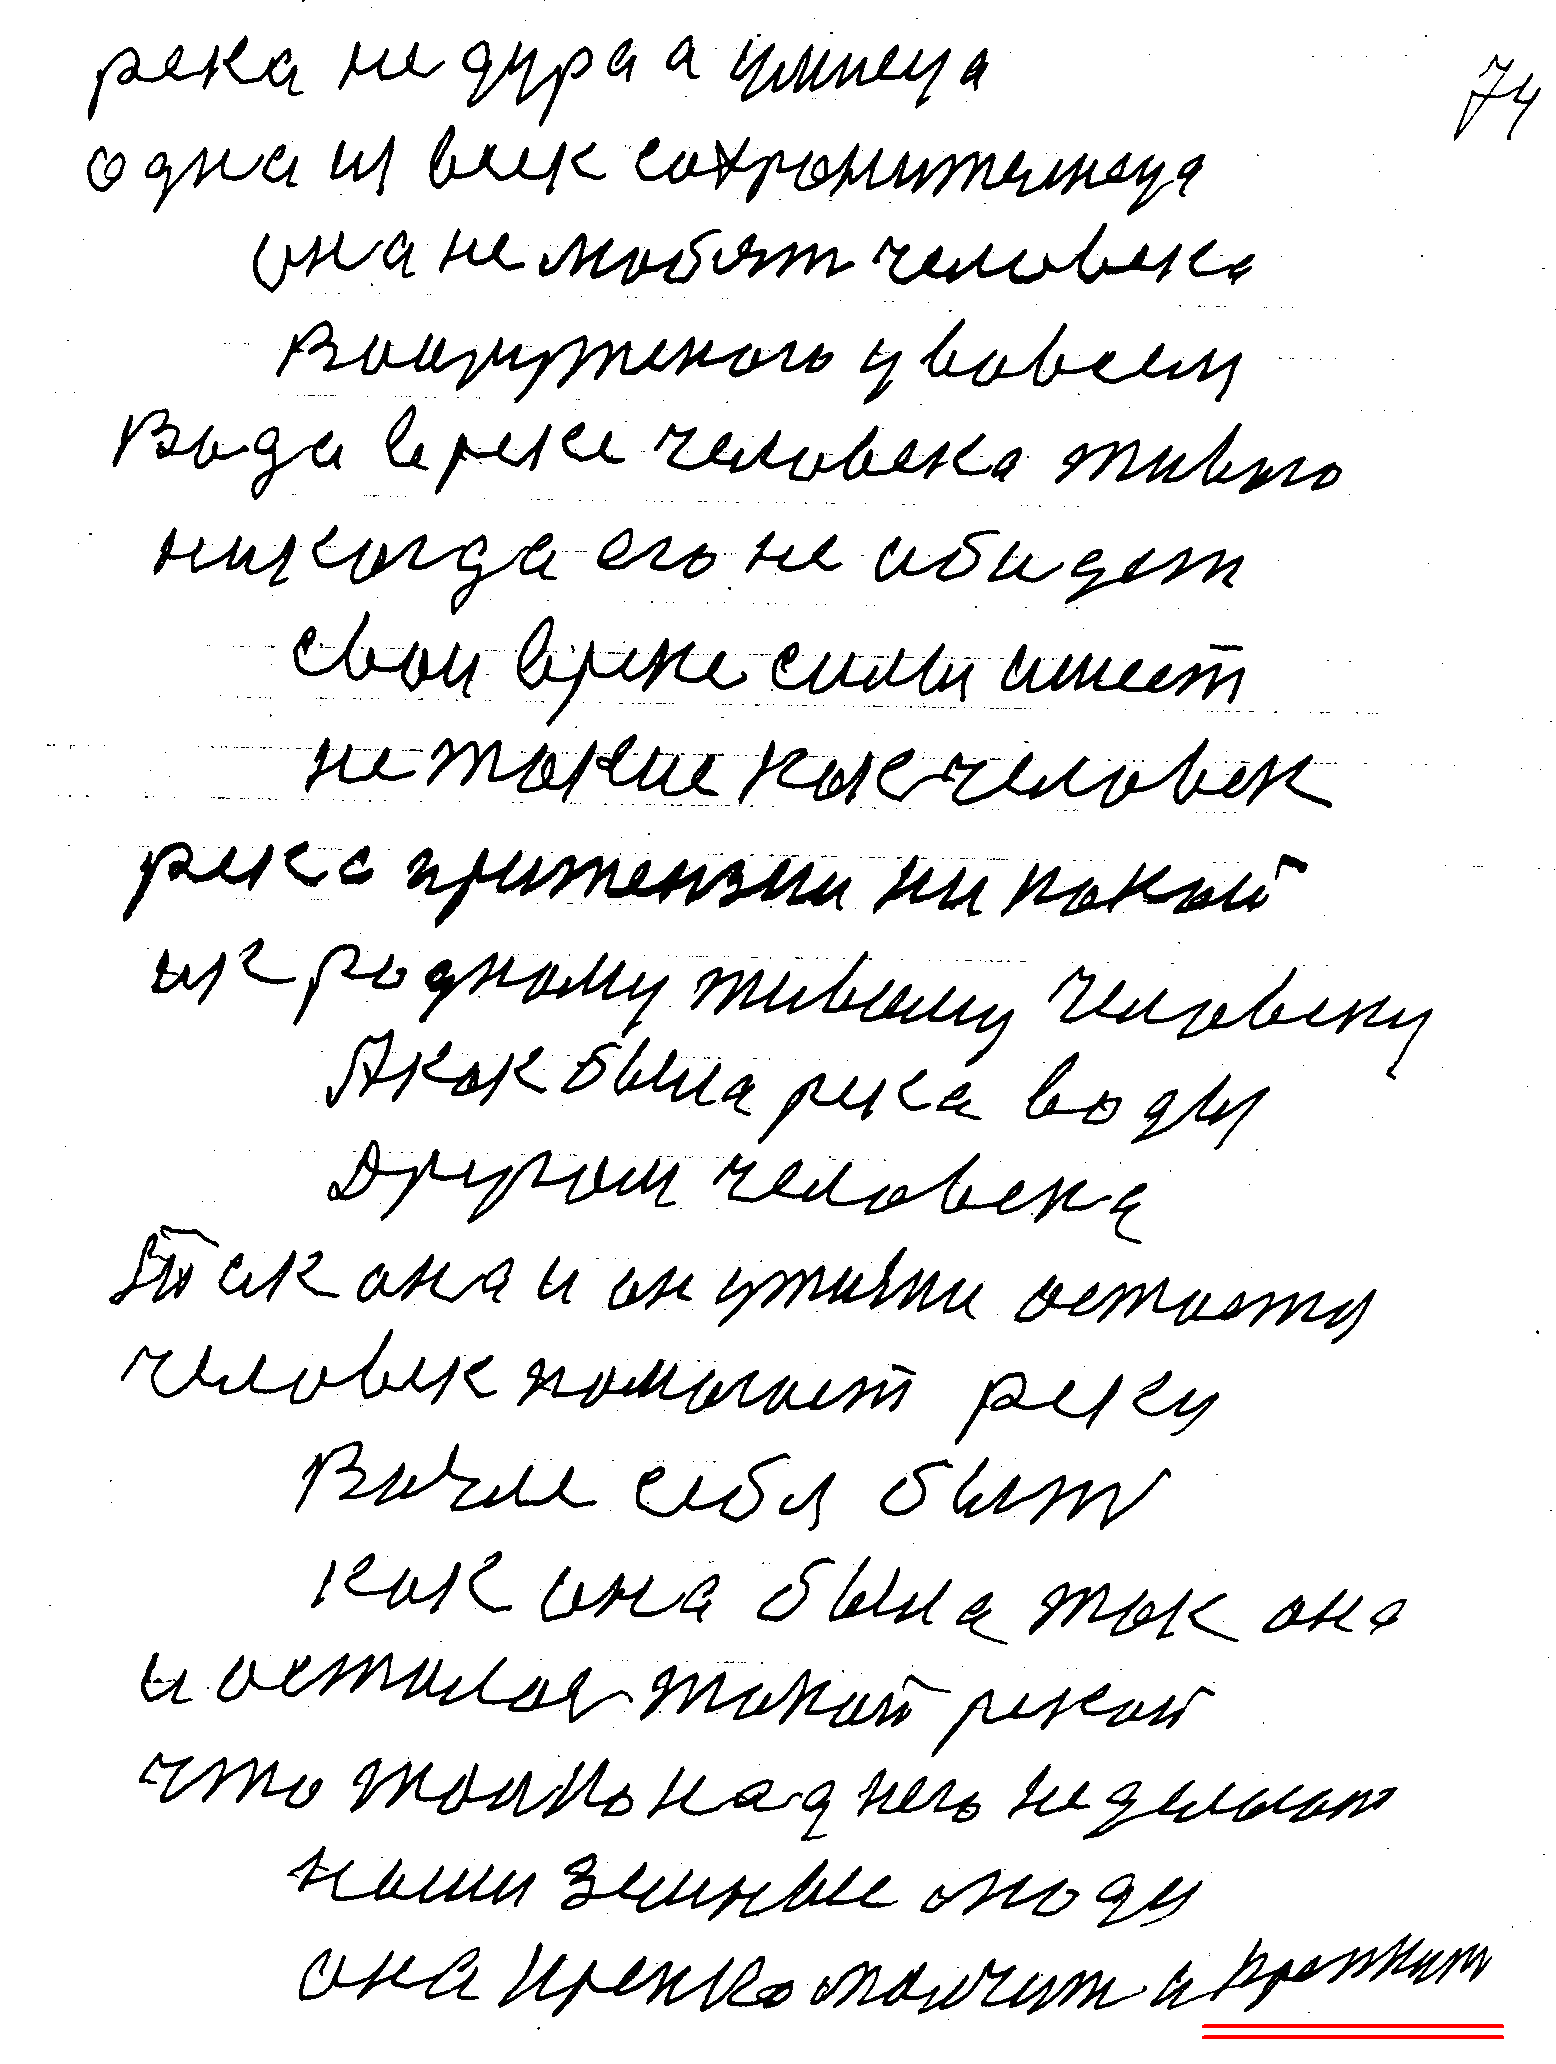 река не дура а умница
74
одна из всех сохронителница
она не любят человека
Вооруженого у во всем
Вода в реке человека живого
никогда его не обидет
свои в реке силы имеет
не такие как человек
река ни покой
их родному живому человеку
А как была река воды
Другом человека
Так она и он остается
человек помогает реку
Возле себя быть
как она была так она
и осталося такой рекой
что только над него не делают
наши земные люди
она крепко молчит и